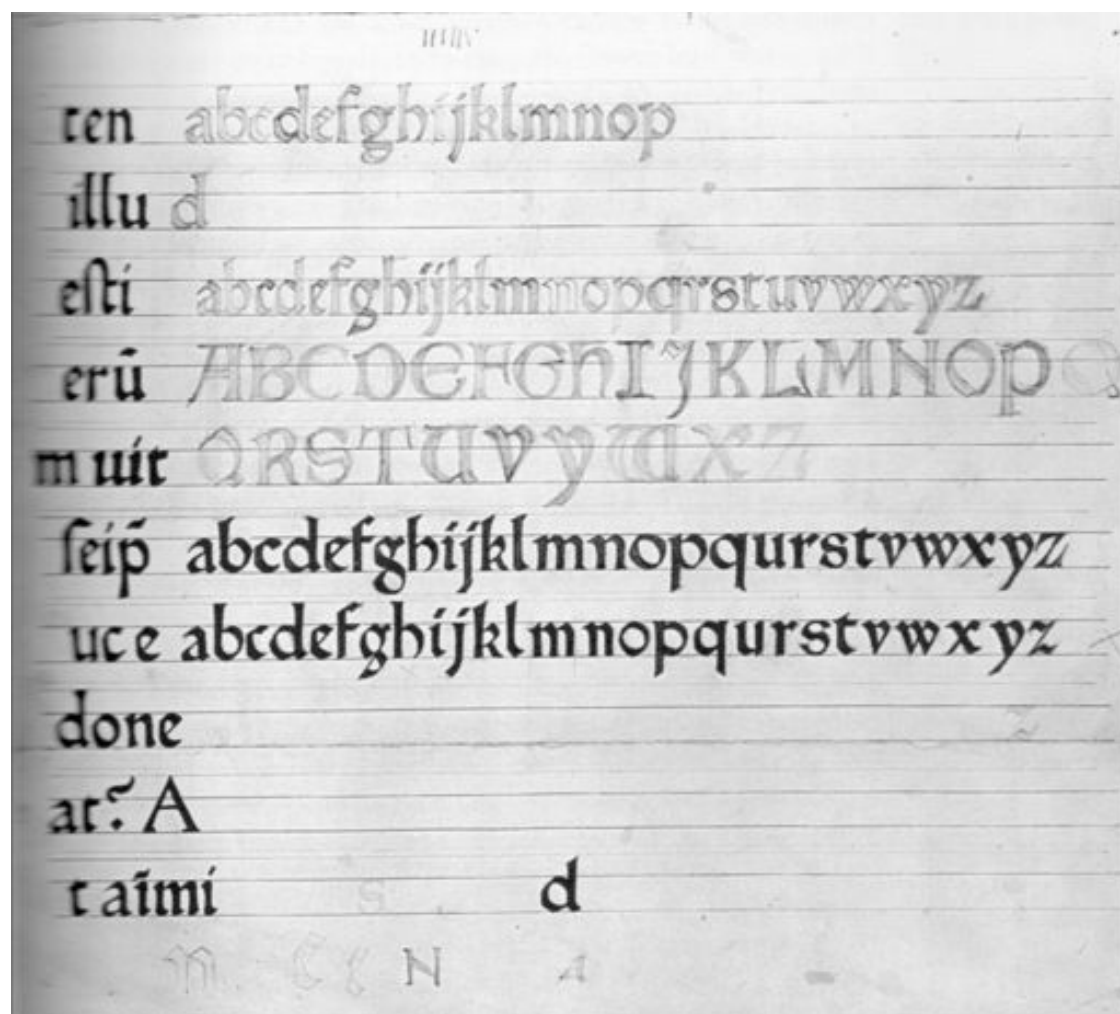 ten abcdefghijklmnop
illu d
eſti abcdefghijklmnopqrstuvwxyz
erũ ABCDEFGHIJKLMNOP Q
m uit QRSTUVYWXZ
ſeip̃ abcdefghijklmnopqurstvwxyz
uc e abcdefghijklmnopqurstvwxyz
done z
at? A
t aĩmi s d
m C N A